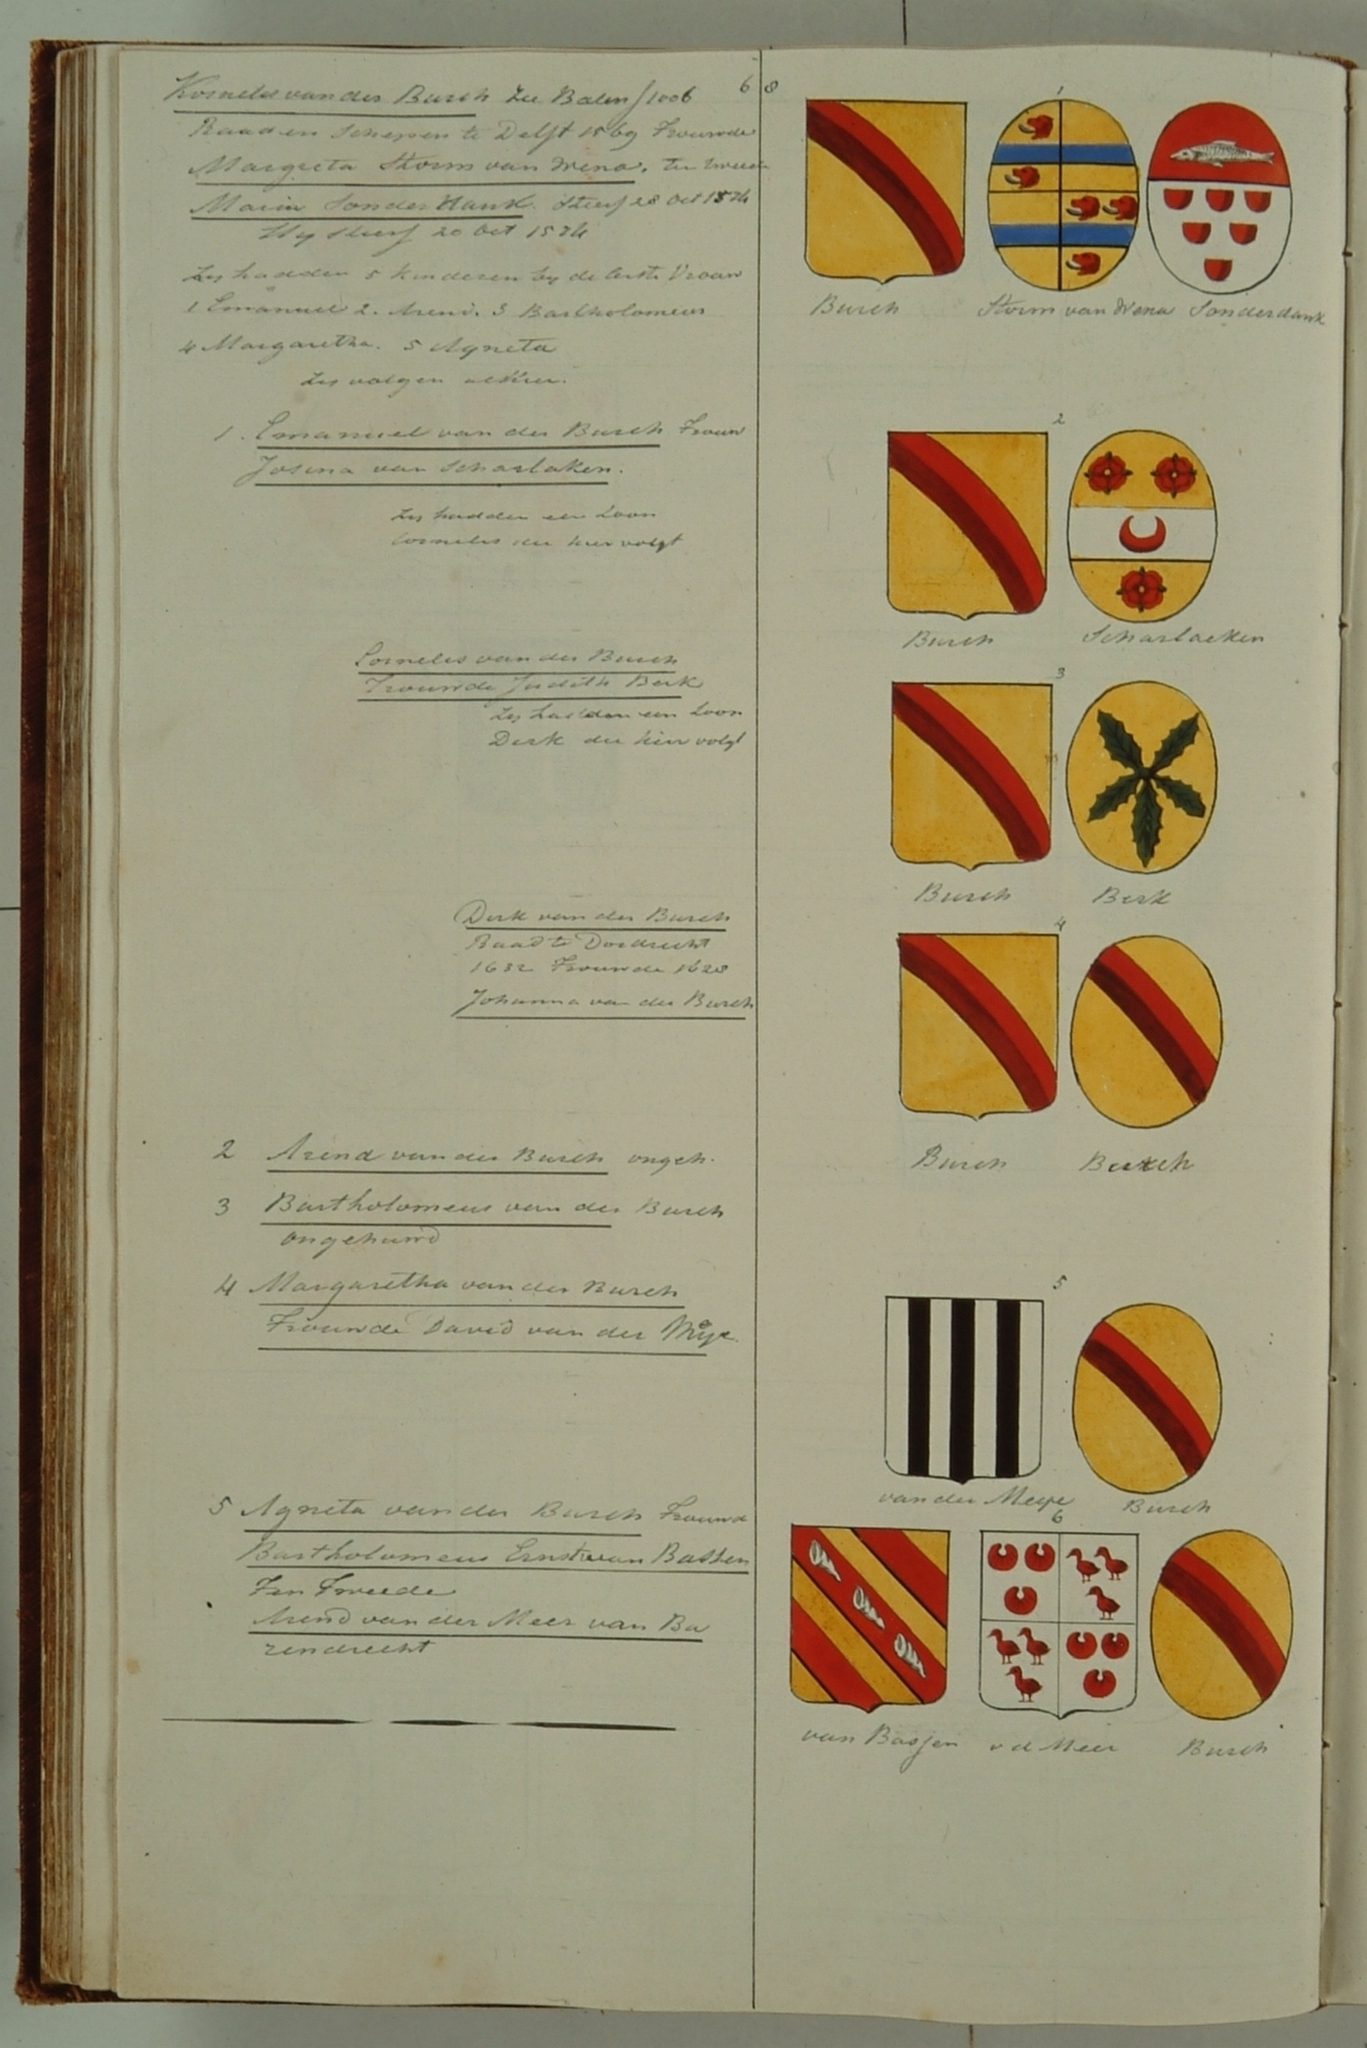 68
Kornelis van der Burch zie Balen f 1006
Raad en Schepen te Delft 1569 Trouwde
Margreta Storm van Wena. ten tweede
Maria Sonderdank. Stierf 28 Oct 1574
Hij stierf 20 Oct 1574
Zij hadden 5 kinderen bij de eerste Vrouw
1 Emanuel 2. Arend. 3 Bartholomeus
4 Margaretha. 5 Agneta
Zij volgen alhier.
1. Emanuel van der Burch Trouw
Josina van Scharlaken.
Zij hadden een Zoon
Cornelis die hier volgt
Cornelis van der Burch
Trouwde Judith Berk
Zij hadden een Zoon
Derk die hier volgt
Derk van der Burch
Raad te Dordrecht
1632 Trouwde 1628
Johanna van der Burch
2 Arend van der Burch ongeh.
3 Bartholomeus van der Burch
ongehuwd
4 Margaretha van der Burch
Trouwde David van der Mije
5 Agneta van der Burch Trouwde
Bartholomeus Ernst van Bassen
Ten Tweede
Arend van der Meer van Be
rendrecht
1
Burch Storm van Wena Sonderdank
2
Burch Scharlaeken
3
Burch Berk
4
Burch Burch
5
van der Meije Burch
6
van Bassen v d Meer Burch